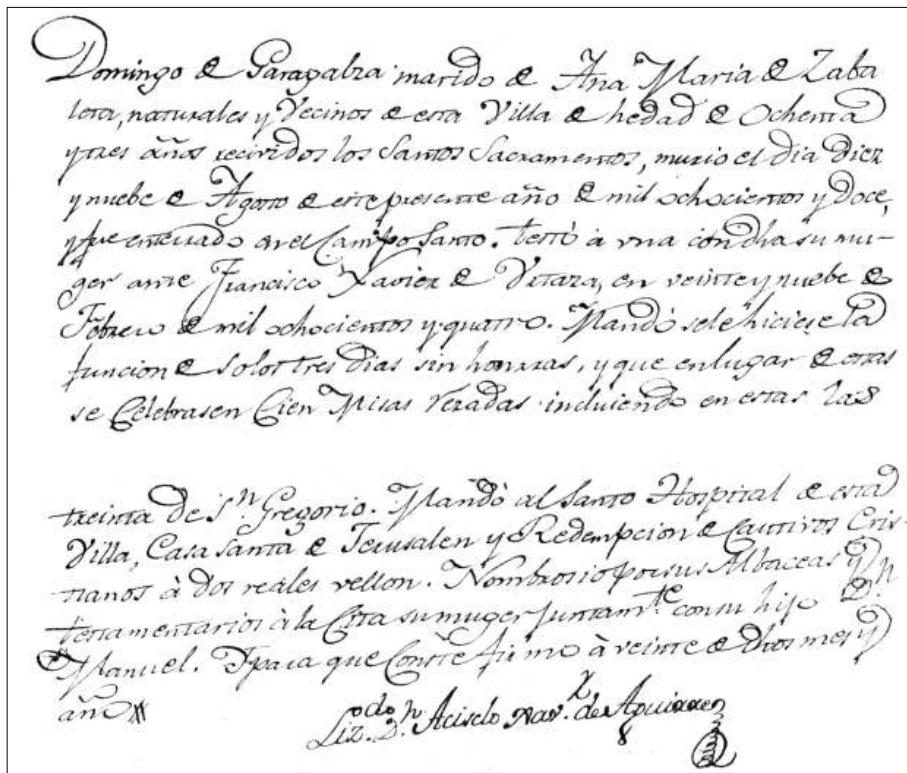 Domingo de Garagalza marido de Ana Maria de Zaba
leta, naturales y Vecinos de esta Villa de hedad de Ochenta
y tres años recividos los Santos Sacramentos, murio el dia diez
y nuebe de Agosto de este presente año de mil ochocientos y Doce,
y fue enterrado en el Campo Santo. testó à vna con dha su mu-
ger ante Francisco Xavier de Vitaza, en veinte y nuebe de
Febrero de mil ochocientos y quatro. Mandó se le hiciese la
funcion de solos tres dias sin honrras, y que en lugar de estas
se Celebrasen Cien Misas rezadas incluiendo en estas las
treinta de Sn. Gregorio. Mandó al Santo Hospital de esta
Villa, Casa Santa de Jerusalen y Redempcion de Cautivos Cris-
tianos à dos reales vellon. Nombrosio por sus Albaceas y
testamentarios à la Cita su muger juntamte. con su hijo Dn
Manuel. Y para que Conste firmo à veinte de dhos mes y
año
Lizdo. Dn. Acisclo Navx. de Aguirre